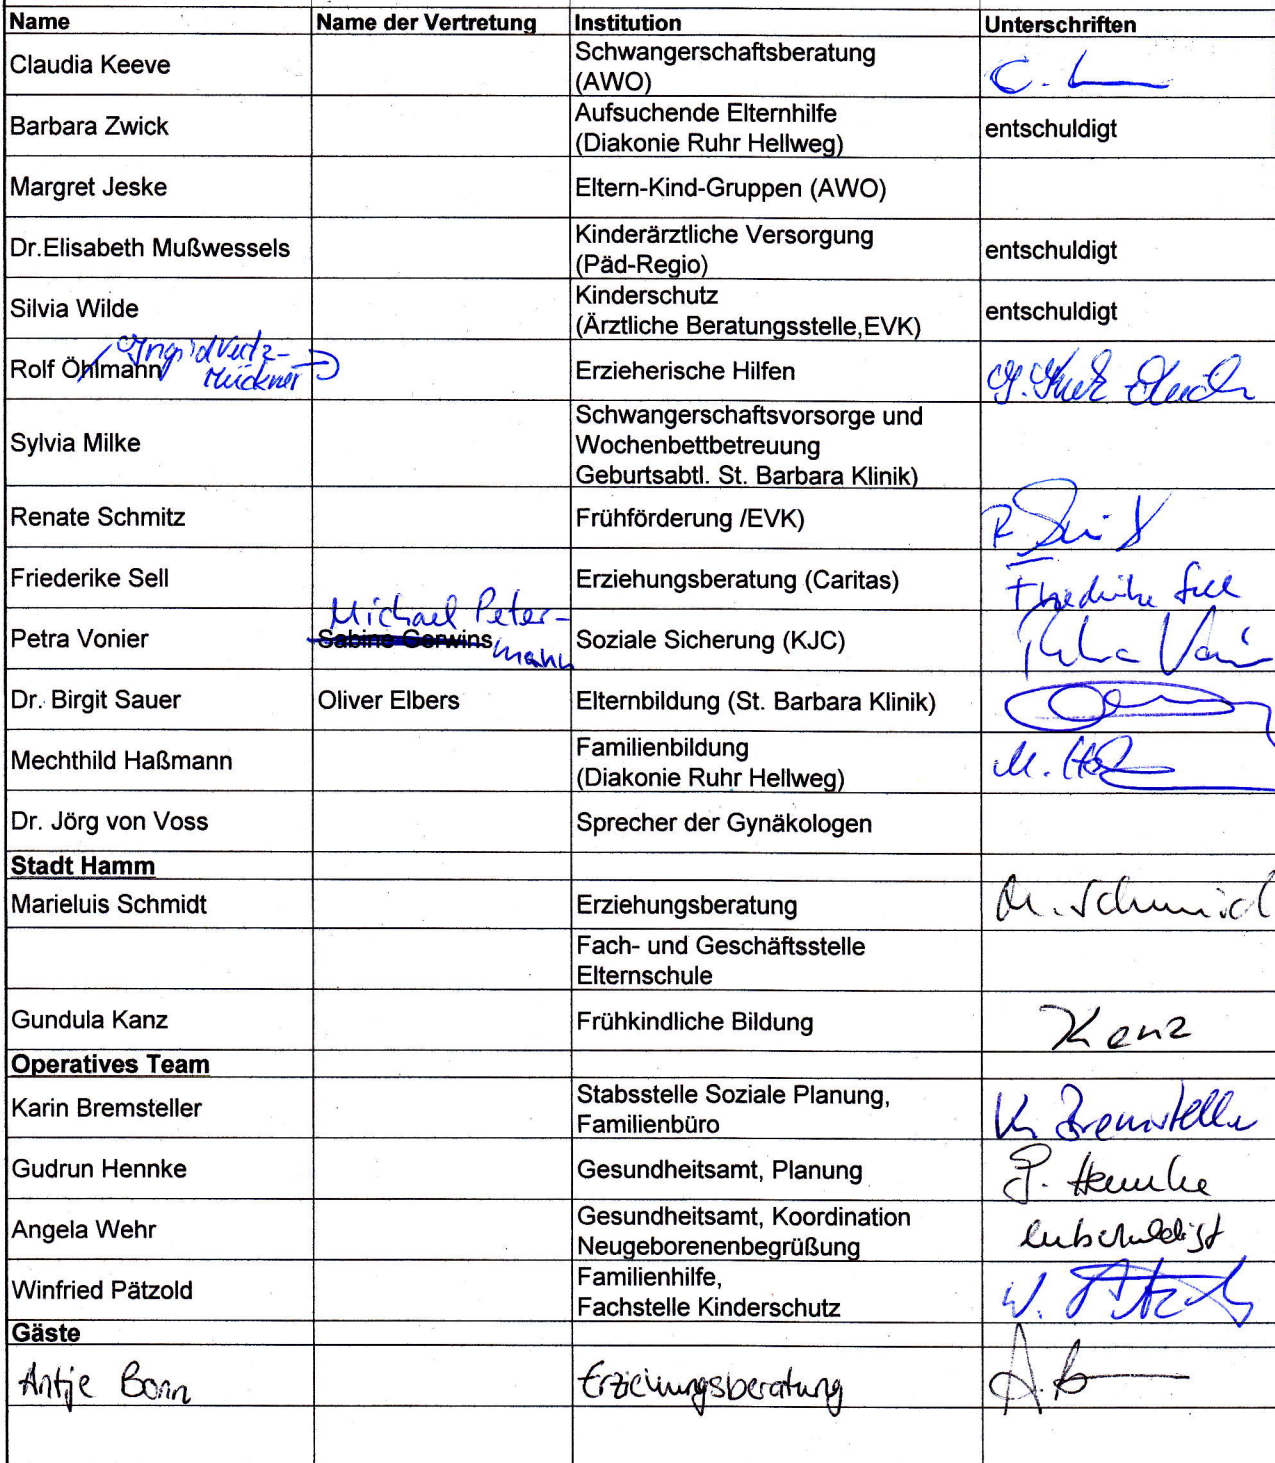 Name Name der Vertretung Institution Unterschriften
Claudia Keeve Schwangerschaftsberatung
(AWO) C.
Barbara Zwick Aufsuchende Elternhilfe
(Diakonie Ruhr Hellweg) entschuldigt
Margret Jeske Eltern-Kind-Gruppen (AWO)
Dr.Elisabeth Mußwessels Kinderärztliche Versorgung
(Päd-Regio) entschuldigt
Silvia Wilde Kinderschutz
(Ärztliche Beratungsstelle,EVK) entschuldigt
Rolf Öhlmann Ingrid Erzieherische Hilfen
Sylvia Milke Schwangerschaftsvorsorge und
Wochenbettbetreuung
Geburtsabtl. St. Barbara Klinik)
Renate Schmitz Frühförderung /EVK) R
Friederike Sell Erziehungsberatung (Caritas) Friederike Sell
Michael Peter-
Petra Vonier Sabine Gerwins mann Soziale Sicherung (KJC) Petra Vonier
Dr. Birgit Sauer Oliver Elbers Elternbildung (St. Barbara Klinik)
Mechthild Haßmann Familienbildung
(Diakonie Ruhr Hellweg) M.
Dr. Jörg von Voss Sprecher der Gynäkologen
Stadt Hamm
Marieluis Schmidt Erziehungsberatung M. Schmid
Fach- und Geschäftsstelle
Elternschule
Gundula Kanz Frühkindliche Bildung Kanz
Operatives Team
Karin Bremsteller Stabsstelle Soziale Planung,
Familienbüro K. Bremsteller
Gudrun Hennke Gesundheitsamt, Planung G. Hennke
Angela Wehr Gesundheitsamt, Koordination
Neugeborenenbegrüßung entschuldigt
Winfried Pätzold Familienhilfe,
Fachstelle Kinderschutz W. Pätzold
Gäste
Antje Bonn Erziehungsberatung A. B